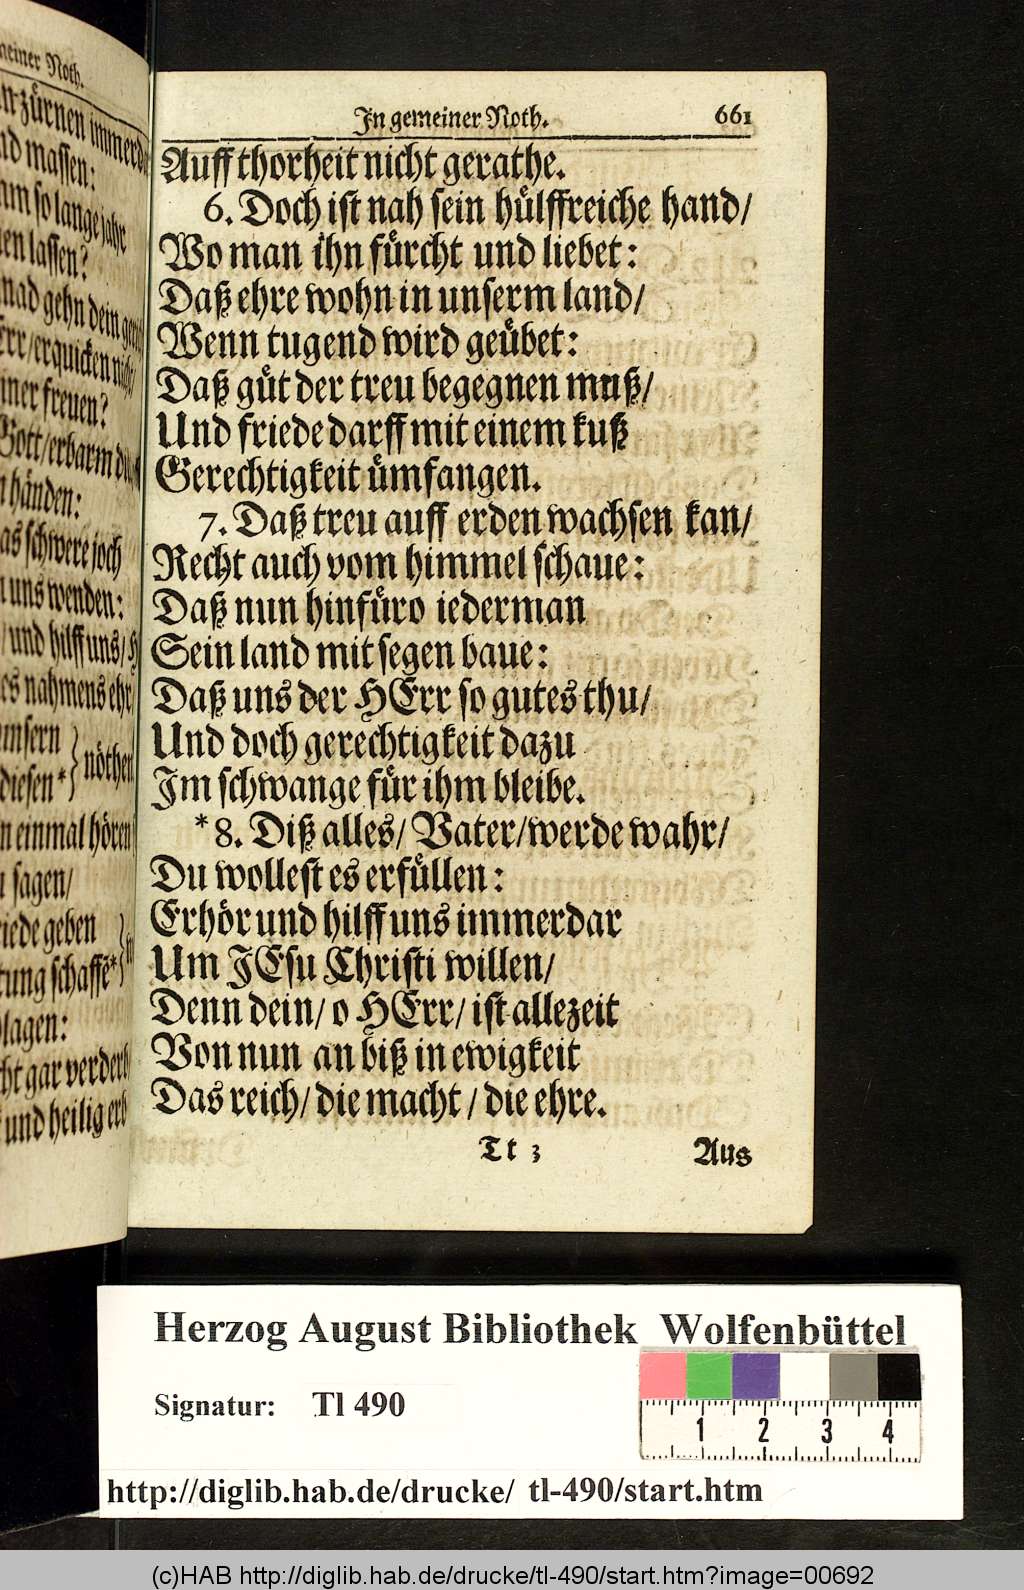 meiner Noth.
zürnen immerd
massen:
so lange jahr
lassen?
gnad gehn dein
/erquicken
freuen?
Gott/erbarm
händen:
schwere joch
uns wenden:
/und hilff uns/
nahmens ehr
unsern
diesen* } nöthen
einmal hören
sagen/
friede geben
schaffē*
plagen:
gar verderb
und heilig erb
In gemeiner Noth. 661
Auff thorheit nicht gerathe.
6. Doch ist nah sein hülffreiche hand/
Wo man ihn fürcht und liebet:
Daß ehre wohn in unserm land/
Wenn tugend wird geübet:
Daß güt der treu begegnen muß/
Und friede darff mit einem kuß
Gerechtigkeit ümfangen.
7. Daß treu auff erden wachsen kan/
Recht auch vom himmel schaue:
Daß nun hinfüro iederman
Sein land mit segen baue:
Daß uns der HErr so gutes thu/
Und doch gerechtigkeit dazu
Im schwange für ihm bleibe.
*8. Diß alles/ Vater/werde wahr/
Du wollest es erfüllen:
Erhör und hilff uns immerdar
Um JEsu Christi willen/
Denn dein/ o HErr/ ist allezeit
Von nun an biß in ewigkeit
Das reich/ die macht / die ehre.
Tt 3 Aus
Herzog August Bibliothek Wolfenbüttel
Signatur: Tl 490
1 2 3 4
http://diglib.hab.de/drucke/ tl-490/start.htm
(c)HAB http://diglib.hab.de/drucke/tl-490/start.htm?image=00692